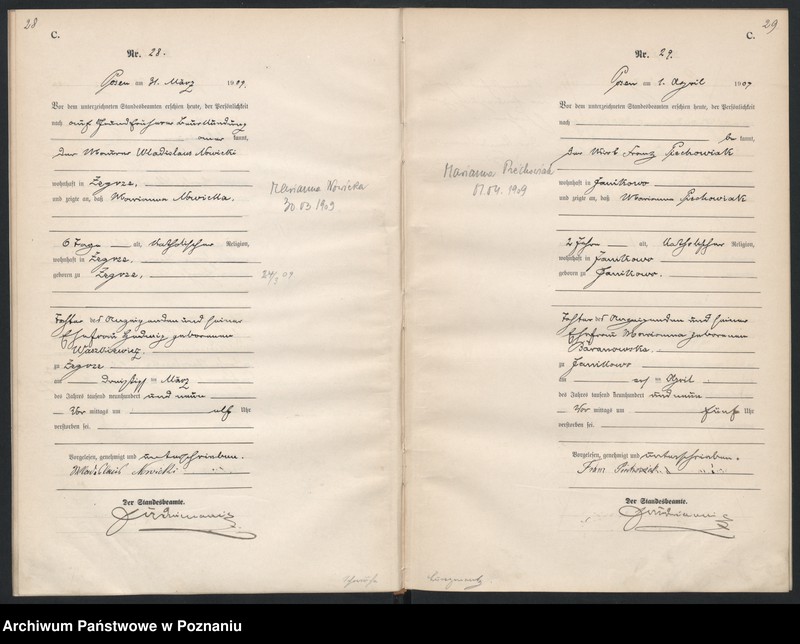 28
C.
Nr. 28.
Posen am 31. März 1909.
Vor dem unterzeichneten Standesbeamten erschien heute, der Persönlichkeit
nach auf Grund früherer Beurkundung
kannt,
der Maurer Wladislaus Nowicki
wohnhaft in Zegrze,
und zeigte an, daß Marianna Nowicka.
6 Tage alt, katholischer Religion,
wohnhaft in Zegrze.
geboren zu Zegrze,
Tochter des Anzeigenden und seiner
Ehefrau Hedwig geborenen
zu Zegrze
am dreißigsten März
des Jahres tausend neunhundert und neun
Vor mittags um elf Uhr
verstorben sei.
Vorgelesen, genehmigt und unterschrieben.
Wladislaus Nowicki
Der Standesbeamte.
Marianna Nowicka
30.03.1909
24/3 09
29
C.
Nr. 29.
Posen am 1. April 1909
Vor dem unterzeichneten Standesbeamten erschien heute, der Persönlichkeit
nach
be kannt,
der Wirt Franz Piechowiak
wohnhaft in Janikowo
und zeigte an, daß Marianna Piechowiak
2 Jahre alt, katholischer Religion,
wohnhaft in Janikowo
geboren zu Janikowo.
Tochter des Anzeigenden und seiner
Ehefrau Marianna geborenen
Baranowska.
zu Janikowo
am April
des Jahres tausend neunhundert und neun
Vor mittags um fünf Uhr
verstorben sei.
Vorgelesen, genehmigt und unterschrieben.
Der Standesbeamte.
Marianna Piechowiak
01.04.1909
Archiwum Państwowe w Poznaniu